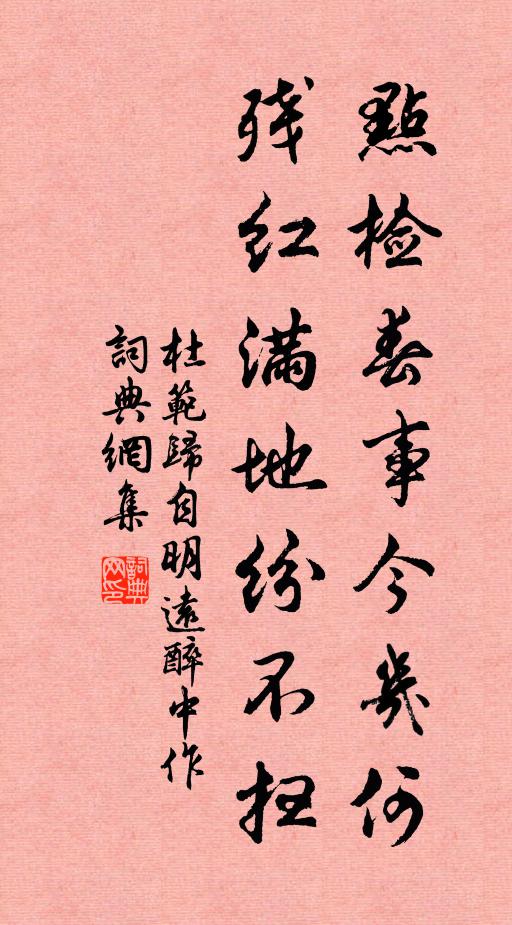 點檢春事今幾何
殘紅滿地紛不掃
杜範歸自明遠醉中作
詞典網集
詞典网印